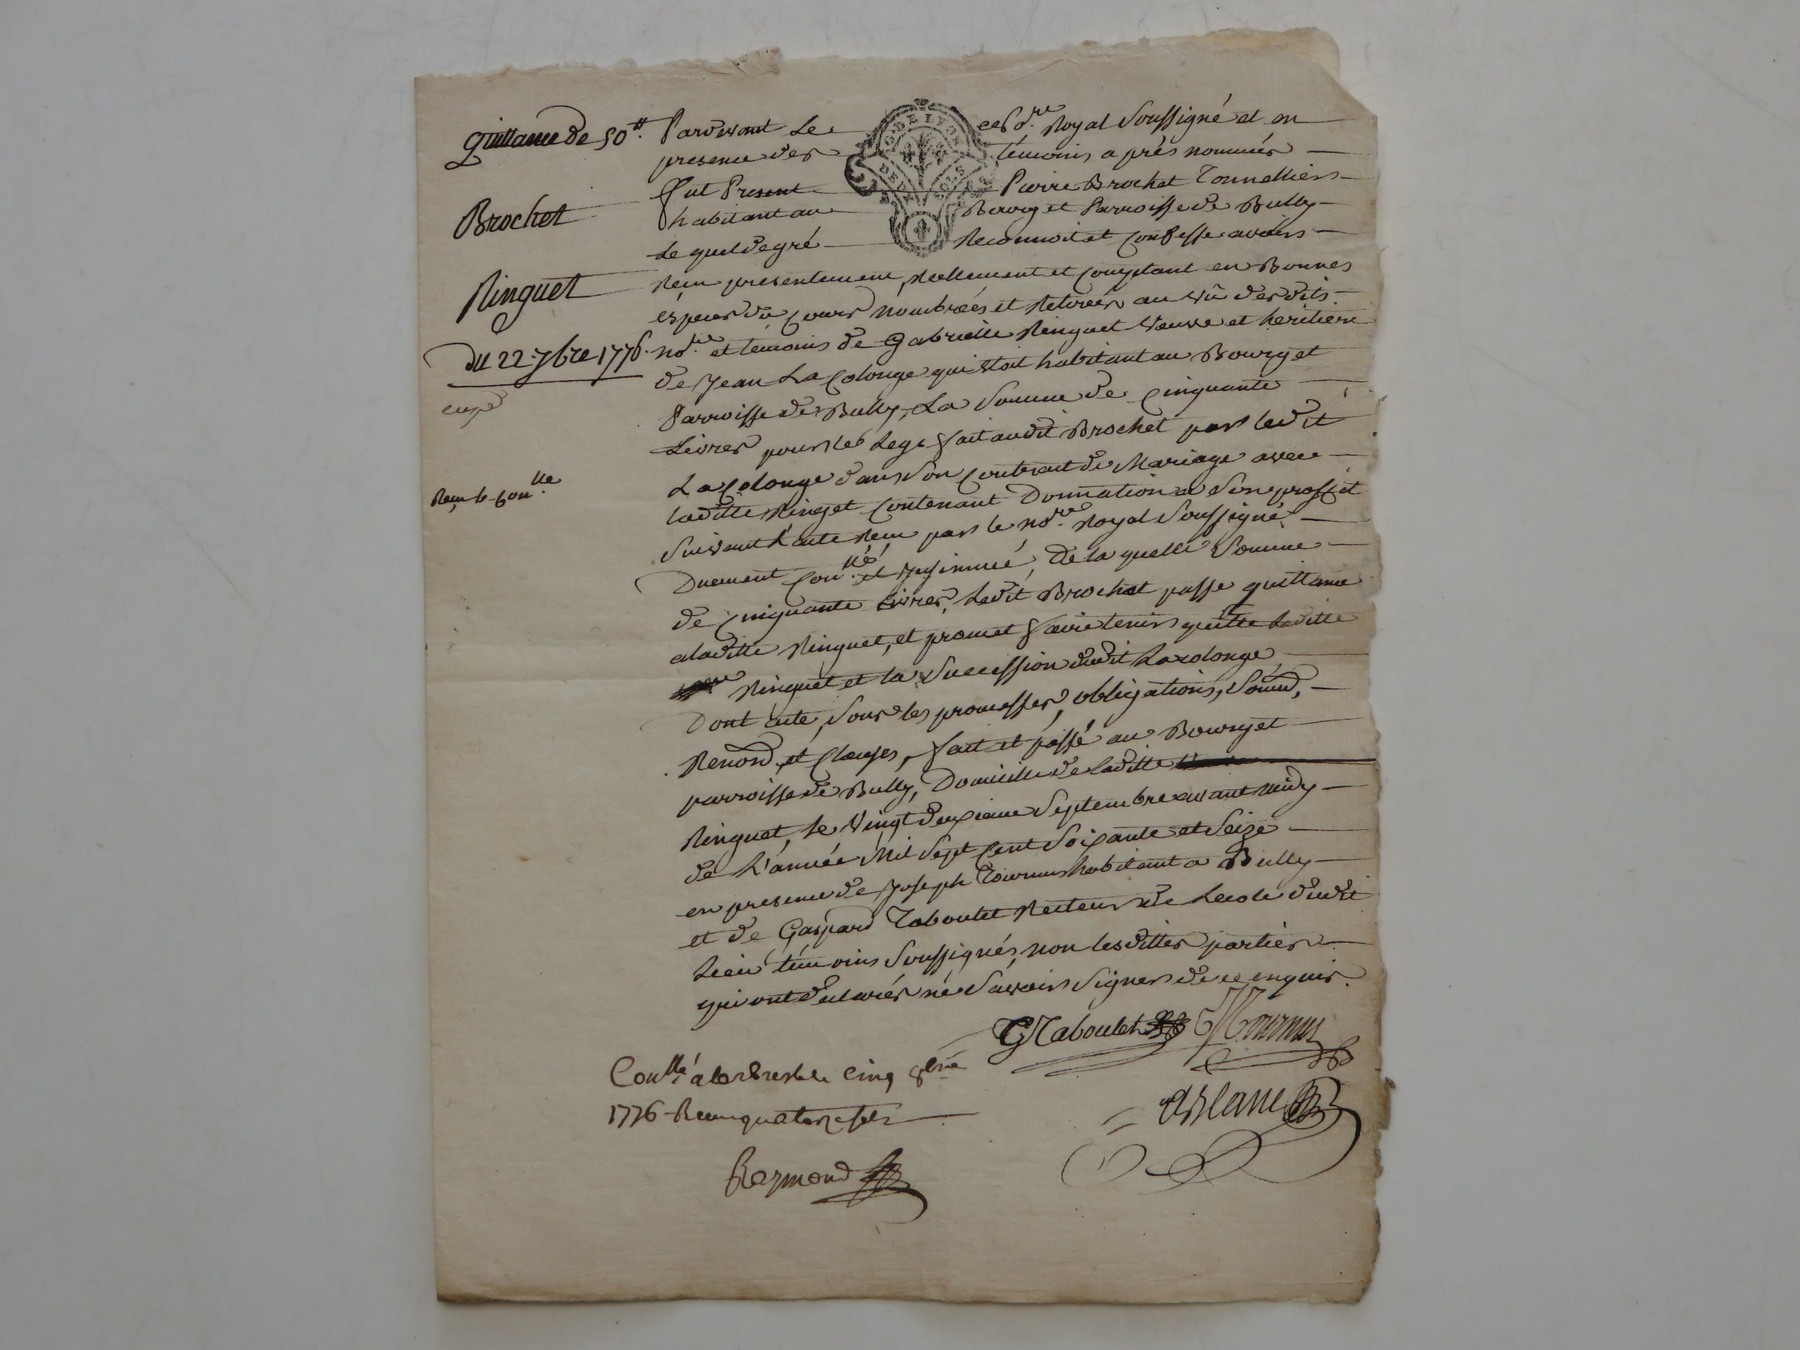 quittance de 50tt.
Brochet
Ringuet
Du 22 7bre 1776.
Reçu le Con.lle
G. DE LYON
DEUX SOLS
Pardevant Le no.re Royal Soussigné et en
presence des témoins après nommés
fut Present Pierre Brochet Tonnellier
habitant au Bourg et Parroisse de Bully
Lequel de gré Reconnoit et Confesse avoir
Reçu presentement, Réellement et Comptant en Bonnes
espèces du Cours nombrées et Retirées au vû des dits
no.re et témoins de Gabrielle Ringuet Veuve et heritiere
de Jean La Colonge qui etoit habitant au Bourg et
Parroisse de Bully, La Somme de Cinquante
Livres pour le Legs fait audit Brochet par ledit
La Colonge dans Son Contract de Mariage avec
laditte Ringet Contenant Donnation a Son proffit
Suivant L'acte Reçu par le no.re Royal Soussigné
Duement Con.llé et Insinué, De laquelle Somme
de Cinquante Livres, Ledit Brochet passe quittance
a laditte Ringuet, et promet faire tenir quitte Laditte
Ringuet et la Succession dudit Lacolonge
Dont acte, Sous les promesses, obligations, Soûm.,
Renon.d, et Clauses, fait et passé au Bourg et
parroisse de Bully, Domicille de laditte
Ringuet, Le Vingt deuxieme Septembre avant midy
de L'année Mil Sept Cent Soixante et Seize
en presence de Joseph Tournus habitant a Bully
et de Gaspard Taboulet Recteur de Lecole dudit
Lieu témoins Soussignés, non lesdittes parties
qui ont declarés né Savoir Signer de ce enquis.
G Taboulet Tournus
Con.llé a larbresle le Cinq 8bre
1776 Reçu quatorze sols
Reymond